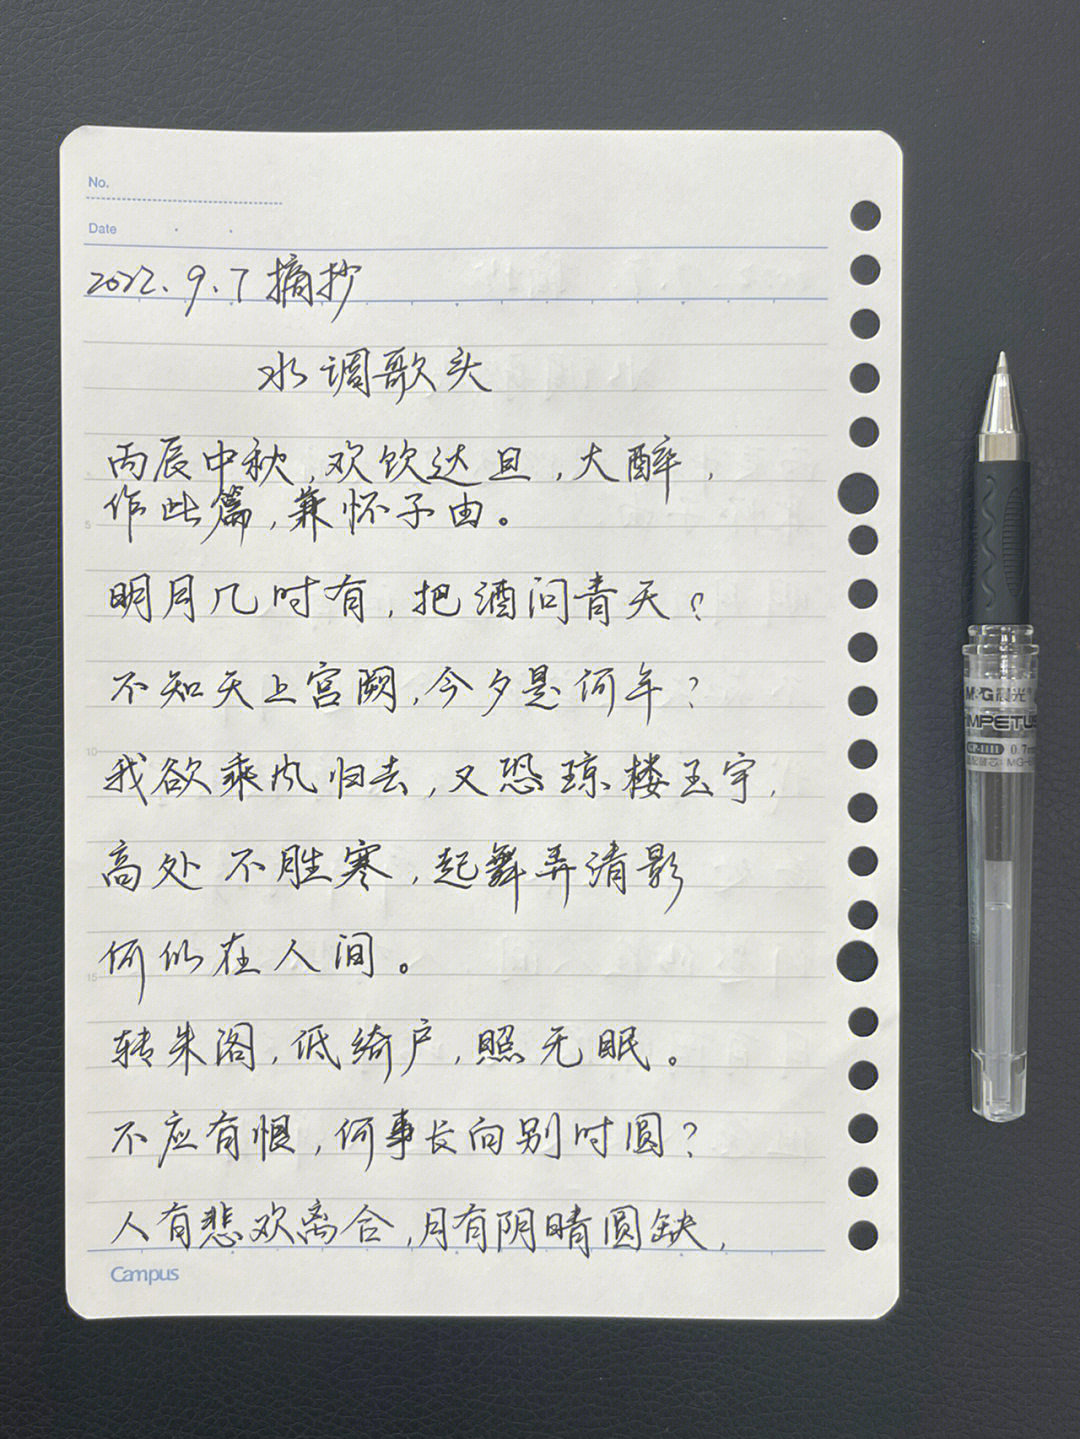 No.
Date
2022.9.7摘抄
水调歌头
丙辰中秋,欢饮达旦,大醉,
作此篇,兼怀子由。
明月几时有,把酒问青天?
不知天上宫阙,今夕是何年?
我欲乘风归去,又恐琼楼玉宇,
高处不胜寒,起舞弄清影
何似在人间。
转朱阁,低绮户,照无眠。
不应有恨,何事长向别时圆?
人有悲欢离合,月有阴晴圆缺,
5
10
15
Campus
M&G晨光
IMPETUS
GP-1111 0.7mm